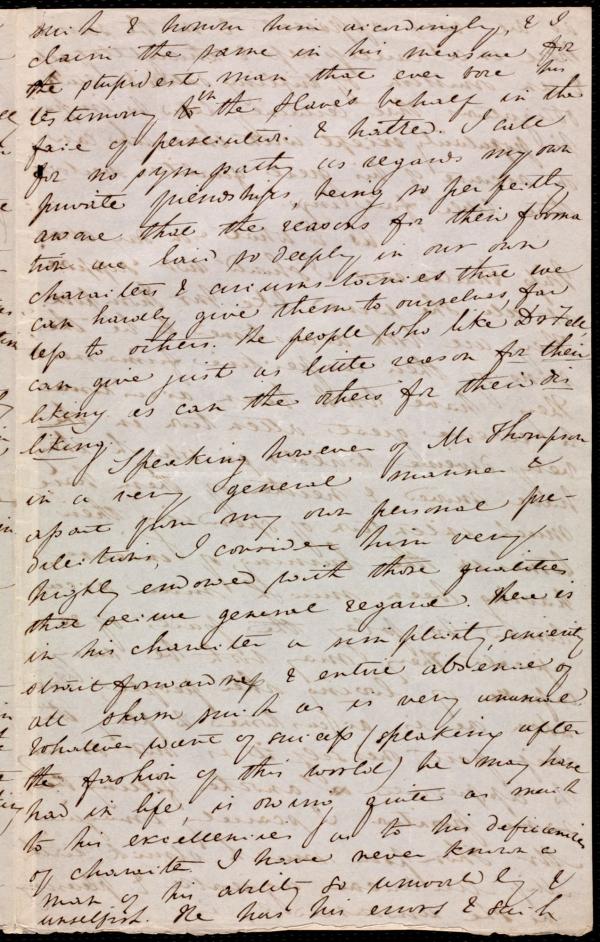 such & honour him accordingly, & I
claim the same in his measure for
the stupidest man that ever bore his
testimony in the slave's behalf in the
face of persecution & hatred. I call
for no sympathy as regards my own
private friendships, being so perfectly
aware that the reasons for their forma
tion are laid so deeply in our own
characters & circumstances that we
can hardly give them to ourselves, far
less to others. The people who like Dr Fell
can give just as little reason for their
liking as can the others for their dis
liking.
Speaking however of Mr Thompson
in a very general manner &
apart from my own personal pre-
dilections, I consider him very
highly endowed with those qualities
that secure general regard. There is
in his character a simplicity, sincerity
straitforwardness & entire absence of
all sham such as is very unusual.
Whatever want of success (speaking after
the fashion of this world) he may have
had in life, is owing quite as much
to his excellencies as to his deficiencies
of character. I have never known a
man of his ability so unworldly &
unselfish. He has his errors & such